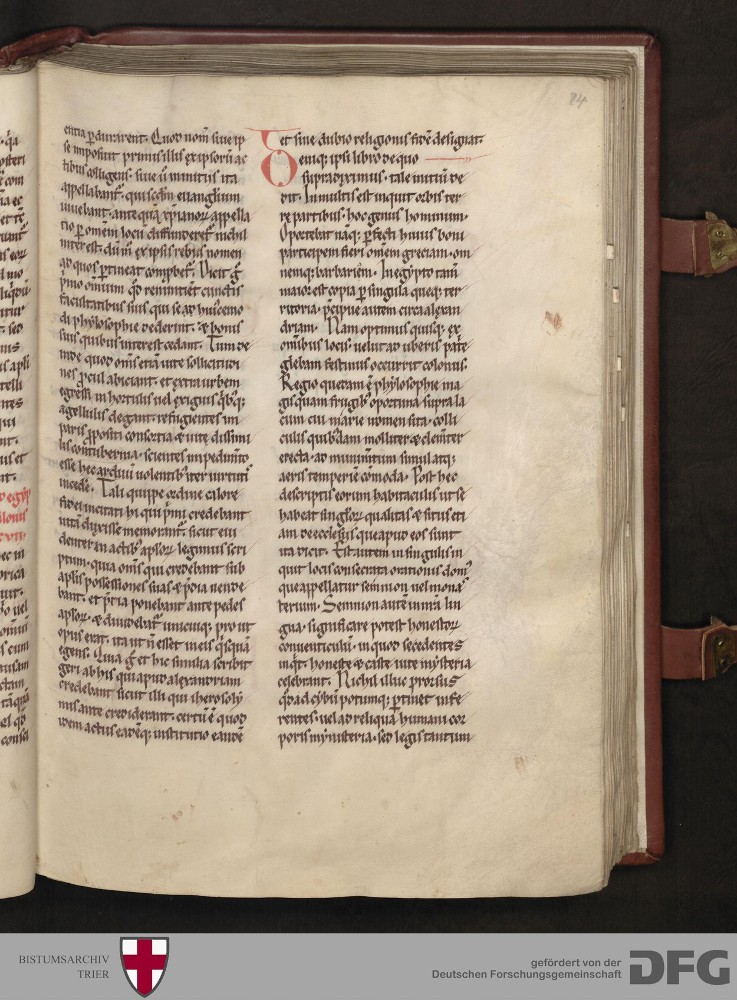 84
entia ꝑdurarent. Quod nom̄ siue ip
se imposuit primus illis ex ipsorū ac
tibus colligens. siue ū initiis ita
appellabant᷑. qui scd̄m euangl̄ium
uiuebant. antequā xp̄ianoꝝ appella
tio ꝑ omēm locū diffunderet᷑. nichil
interest. dū m̄ ex ipsis rebus nomen
ad quos ꝑtineat comprobet᷑. Dicit g̃
p̄mo omnium qd̄ renuntient cunctis
facultatibus suis qui se ad huiꝰcemo
di phylosophie dederint. & bonis
suis quibus interest cedant. Tum de
inde quod om̄s etiā uite sollicitudi
nes ꝓcul abiciant. et extra urbem
egressi in hortulis uel exiguis qb̉q;
agellulis degant. refugientes im
paris ꝓpositi consortia & uite dissimi
lis contubernia. scientes impedim̄to
esse hec arduū uolentibꝰ iter uirtuti
incede͂. Tali quippe ordine calore
fidei incitati hi qui p̄mi credebant
uitā duxisse memorant᷑. sicut eui
denter in actibꝰ apl̄oꝝ legimus scri
ptum. quia om̄s qui credebant sub
apl̄is possessiones suas & p̄dia uende
bant. et p̄tia ponebant ante pedes
apl̄oꝝ. & diuidebat᷑ unicuiq; ꝓ ut
opus erat. ita ut n̄ esset in eis qs̉quā
egens. Quia g̃ et his similia scribit
geri ab his qui apud alexandriam
credebant sicut illi qui iherosoly
mis ante crediderant. certū ē quod
idem actus eadēq; institutio eandē
et sine dubio religionis fidē designat.
Deniq; ipsi libro de quo
supra diximus. tale initiū de
dit. In multis est inquit orbis ter
re partibus. hoc genus hominum.
Oportebat nāq; ꝑfecti huius boni
participem fieri om̄em greciam. om
nemq; barbariem. In egypto tam̄
maior est copia ꝑ singula queq; ter
ritoria. p̄cipue autem circa alexan
driam. Nam optimus quisq; ex
omnibus locis. uelut ad uberis pat̉e
glebam festinus occurrit colonus.
Regio quedam ē phylosophie ma
gis quam frugibꝰ oportuna supra la
cum cui marie nomen sita. colli
culis quibꝰdam molliter & clem̄ter
erecta. ad munim̄tum simul atq;
aeris temperiē com̄oda. Post hec
descriptis eorum habitaculis ut se
habeat singl̄oꝝ qualitas & situs eti
am de ecclesiis que apud eos sunt
ita dicit. Est autem in singulis in
quit locis consecrata orationis domꝰ
que appellatur semnion uel monas
terium. Semnion autē in nr̄a lin
gua. significare potest honestoꝝ
conuenticulū. in quod secedentes
inqt̉. honeste & caste uite mysteria
celebrant. Nichil illuc prorsus
qd̄ ad cybū potumq; ꝑtinet infe
rentes. uel ad reliquā humani cor
poris mynisteria. sed legis tantum
BISTUMSARCHIV
TRIER
gefördert von der
Deutschen Forschungsgemeinschaft
DFG